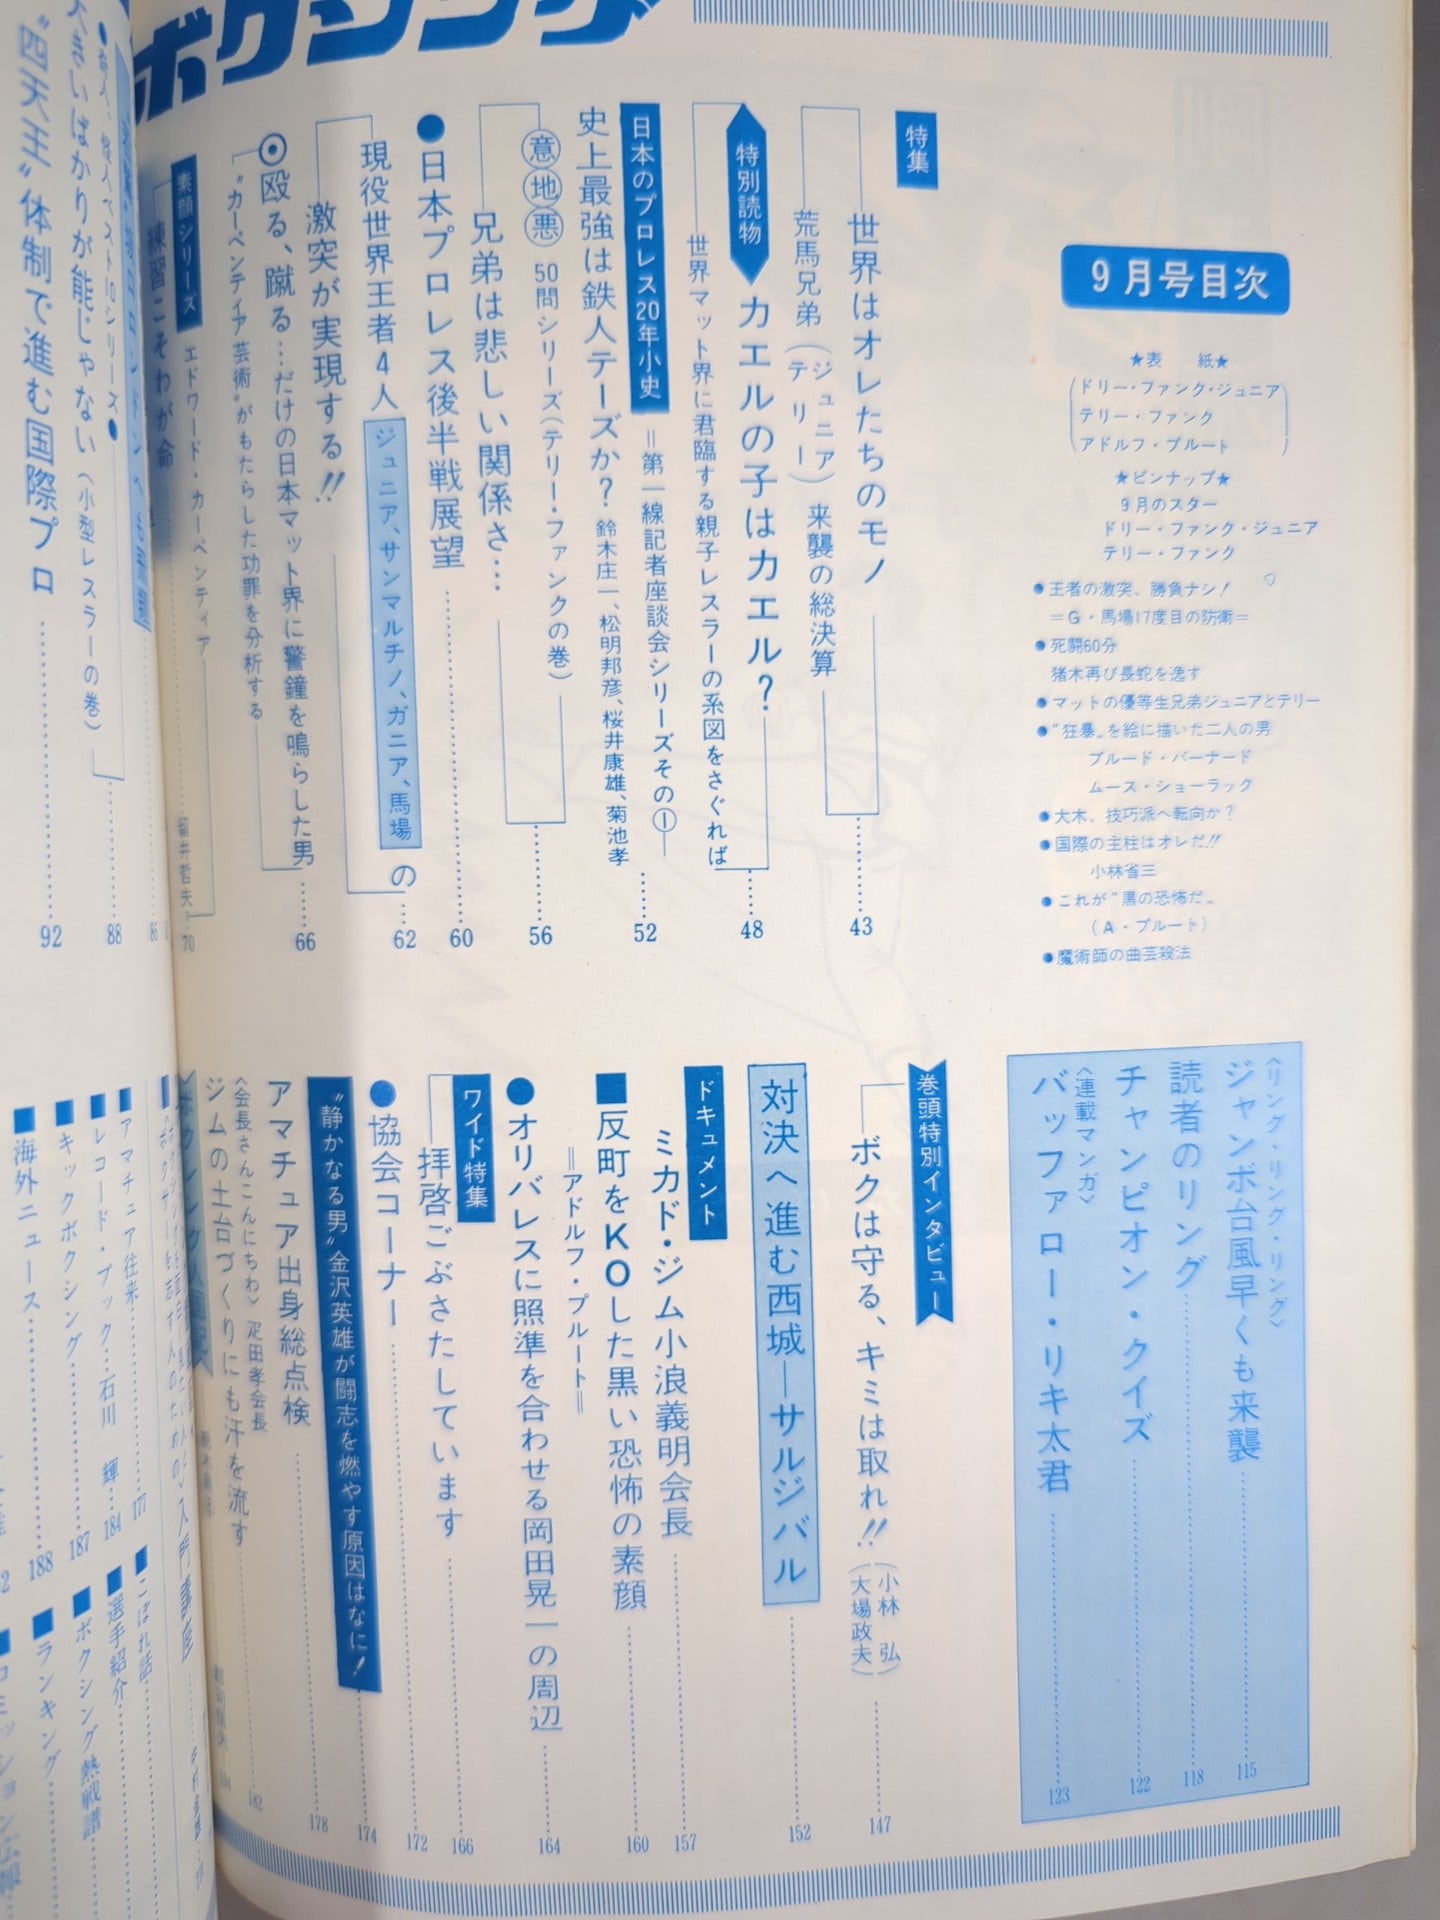 ボクシング
9月号目次
★表　紙★
ドリー・ファンク・ジュニア
テリー・ファンク
アドルフ・プルート
★ピンナップ★
9月のスター
ドリー・ファンク・ジュニア
テリー・ファンク
●王者の激突、勝負ナシ!
＝G・馬場17度目の防衛＝
●死闘60分
猪木再び長蛇を逸す
●マットの優等生兄弟ジュニアとテリー
●“狂暴„を絵に描いた二人の男
ブルード・バーナード
ムース・ショーラック
●大木、技巧派へ転向か?
●国際の主柱はオレだ!!
小林省三
●これが“黒の恐怖だ„
(A・プルート)
●魔術師の曲芸殺法
特集
世界はオレたちのモノ
荒馬兄弟(ジュニア テリー)来襲の総決算……43
特別読物
カエルの子はカエル?
世界マット界に君臨する親子レスラーの系図をさぐれば……48
日本のプロレス20年小史
＝第一線記者座談会シリーズその①―
史上最強は鉄人テーズか? 鈴木庄一、松明邦彦、桜井康雄、菊池孝……52
意地悪 50問シリーズ(テリー・ファンクの巻)
兄弟は悲しい関係さ………56
●日本プロレス後半戦展望……60
現役世界王者4人 ジュニア、サンマルチノ、ガニア、馬場 の
激突が実現する!!……62
◎殴る、蹴る…だけの日本マット界に警鐘を鳴らした男
“カーペンティア芸術”がもたらした功罪を分析する……66
素顔シリーズ
エドワード・カーペンティア
練習こそわが命……70
大きいばかりが能じゃない〈小型レスラーの巻〉……88
“四天王”体制で進む国際プロ……92
〈リング・リング・リング〉
ジャンボ台風早くも来襲……115
読者のリング……118
チャンピオン・クイズ……122
〈連載マンガ〉
バッファロー・リキ太君……123
巻頭特別インタビュー
ボクは守る、キミは取れ!!(小林　弘 大場政夫)……147
対決へ進む西城―サルジバル……152
ドキュメント
ミカド・ジム小浪義明会長……157
■反町をKOした黒い恐怖の素顔
＝アドルフ・プルート＝……160
●オリバレスに照準を合わせる岡田晃一の周辺……164
ワイド特集
拝啓ごぶさたしています……166
●協会コーナー……172
“静かなる男”金沢英雄が闘志を燃やす原因はなに!……174
アマチュア出身総点検……178
〈会長さんこんにちわ〉 疋田孝会長
ジムの土台づくりにも汗を流す……182
■アマチュア往来……177
■レコード・ブック…石川　輝…184
■キックボクシング……187
■海外ニュース……188
■こぼれ話
■選手紹介
■ボクシング熱戦譜
■ランキング